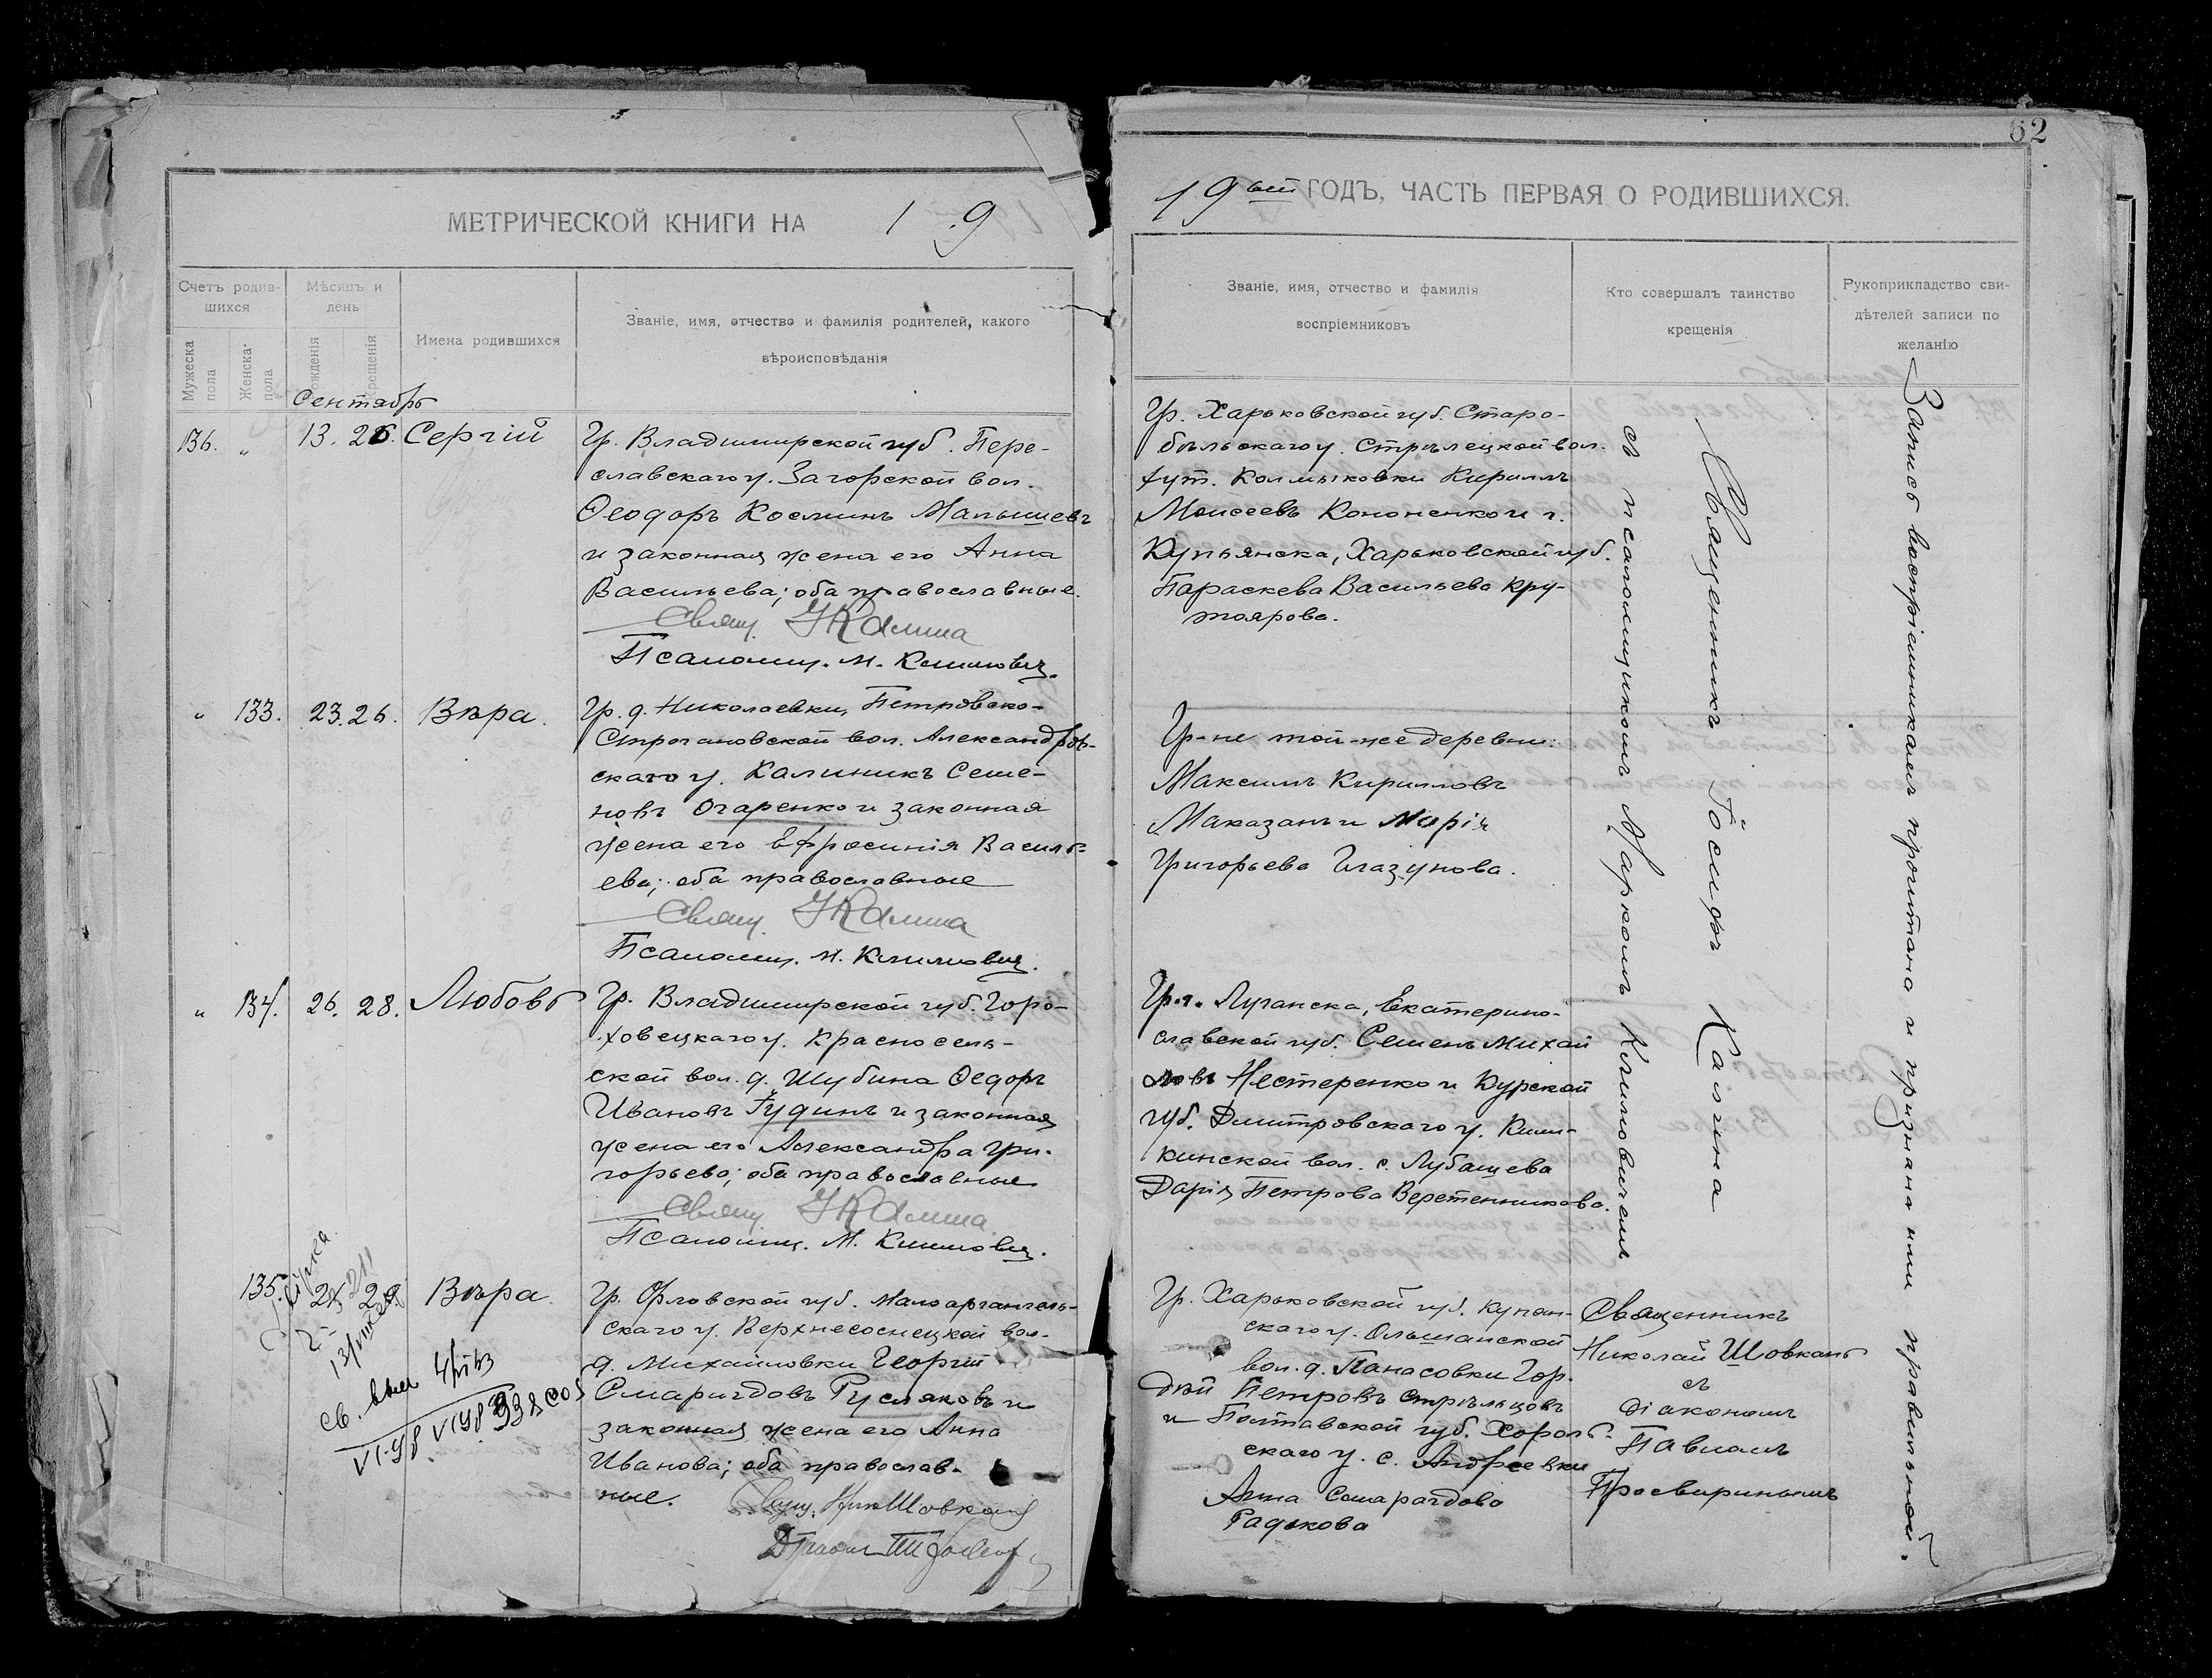 62
МЕТРИЧЕСКОЙ КНИГИ НА 1 9
19 ГОДЪ, ЧАСТЬ ПЕРВАЯ О РОДИВШИХСЯ.
Счетъ родив-
шихся
Мужеска пола
Женска- пола
Мѣсяцъ и
день
рожденія
крещенія
Имена родившихся
Званіе, имя, отчество и фамилія родителей, какого
вѣроисповѣданія
Званіе, имя, отчество и фамилія
воспріемниковъ
Кто совершалъ таинство
крещенія
Рукоприкладство сви-
дѣтелей записи по
желанію
Сентябрь
136. „ 13. 26. Сергій
Гр. Владимирской губ. Пере-
славскаго у. Загорской вол.
Ѳеодоръ Косминъ Малышевъ
и законная жена его Анна
Васильева; оба православные.
Свящ. І Калина
Псаломщ. М. Климович.
Гр. Харьковской губ. Старо-
бѣльскаго у. Стрѣлецкой вол.
хут. Колмыковки Кириллъ
Моисеевъ Кононенко и г.
Купьянска, Харьковской губ.
Параскева Васильева Кру-
тоярова.
„ 133. 23. 26. Вѣра.
Гр. д. Николаевки, Петровско-
Строгановской вол. Александров-
скаго у. Калиникъ Семе-
новъ Огаренко и законная
жена его Ефросинія Василь-
ева; оба православные
Свящ. І Калина
Псаломщ. М. Климович.
Гр-не той-же деревни:
Максимъ Кирилловъ
Маказанъ и Марія
Григорьева Глазунова.
„ 134. 26. 28. Любовь
Гр. Владимирской губ. Горо-
ховецкаго у. Красносель-
ской вол. д. Шубина Ѳедоръ
Ивановъ Гудинъ и законная
жена его Александра Гри-
горьева; оба православные
Свящ. І Калина
Псаломщ. М. Климович.
Гр. г. Луганска, Екатерино-
славской губ. Семенъ Михай
ловъ Нестеренко и Курской
губ. Дмитровскаго у.
кинской вол. с. Лубашева
Дарія Петрова Веретенникова.
Священникъ Іосифъ Калина
съ псаломщикомъ Маркомъ Климовичемъ
Запись воспріемникамъ прочитана и признана ими правильной.
135. 25 29. Вѣра
Гр. Орловской губ. Малоархангель-
скаго у. Верхнесоснецкой вол.
д. Михайловки Георгій
Смарагдовъ Русляковъ и
законная жена его Анна
Иванова; оба православ-
ные.
Свящ. Ник Шовкань
Гр. Харьковской губ. Купян-
скаго у. Ольшанской
вол. д. Панасовки Гор-
дѣй Петровъ Стрѣльцовъ
и Полтавской губ. Хороль-
скаго у. с. Андреевки
Анна Смарагдова
Радькова
Священникъ
Николай Шовкань
съ
діакономъ
Павломъ
Просвиринымъ